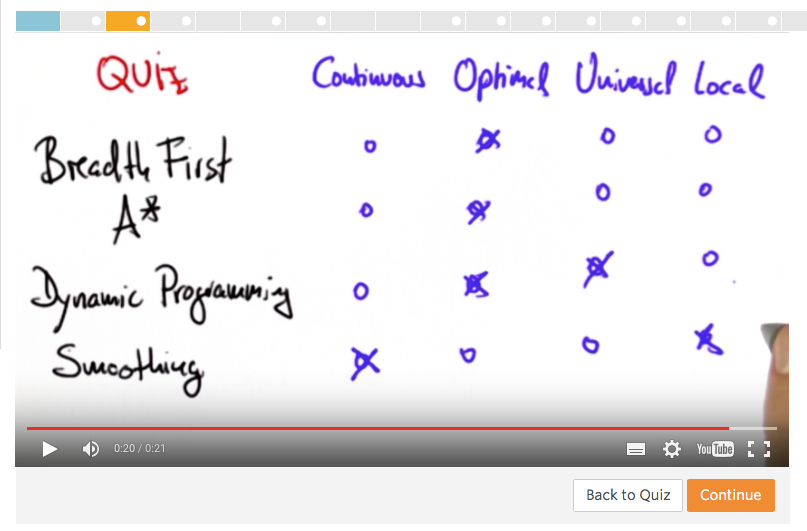 QUIZ Continuous Optimal Universal Local
Breadth First
A*
Dynamic Programming
Smoothing
0:20 / 0:21 YouTube
Back to Quiz Continue